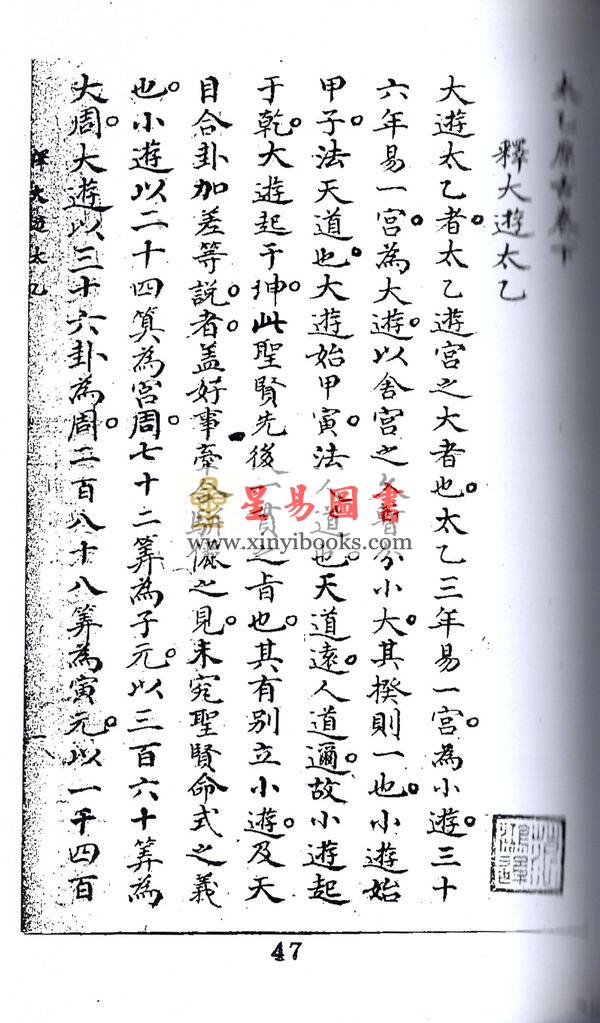 太乙原古卷下
釋大遊太乙
大遊太乙者太乙遊宮之大者也。太乙三年易一宮。為小遊。三十
六年易一宮為大遊。以舍宮之久暫分小大。其揆則一也。小遊始
甲子。法天道也。大遊始甲寅。法人道也。天道遠。人道邇。故小遊起
于乾。大遊起于坤。此聖賢先後一貫之旨也。其有別立小遊。及天
目合卦加差等說。者。盖好事牽合駢儷之見。未宛聖賢命式之義
也。小遊以二十四算為宮周。七十二算為子元。以三百六十算為
大周。大遊以三十六卦為周。二百八十八算為寅元。以一千四百
釋大遊太乙
一
星易圖書
www.xinyibooks.com
47